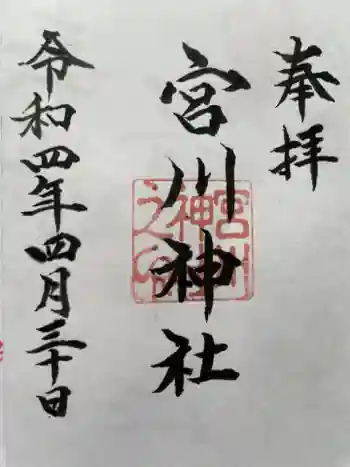 奉拝
宮川神社
令和四年四月三十日
宮川
神社
之印